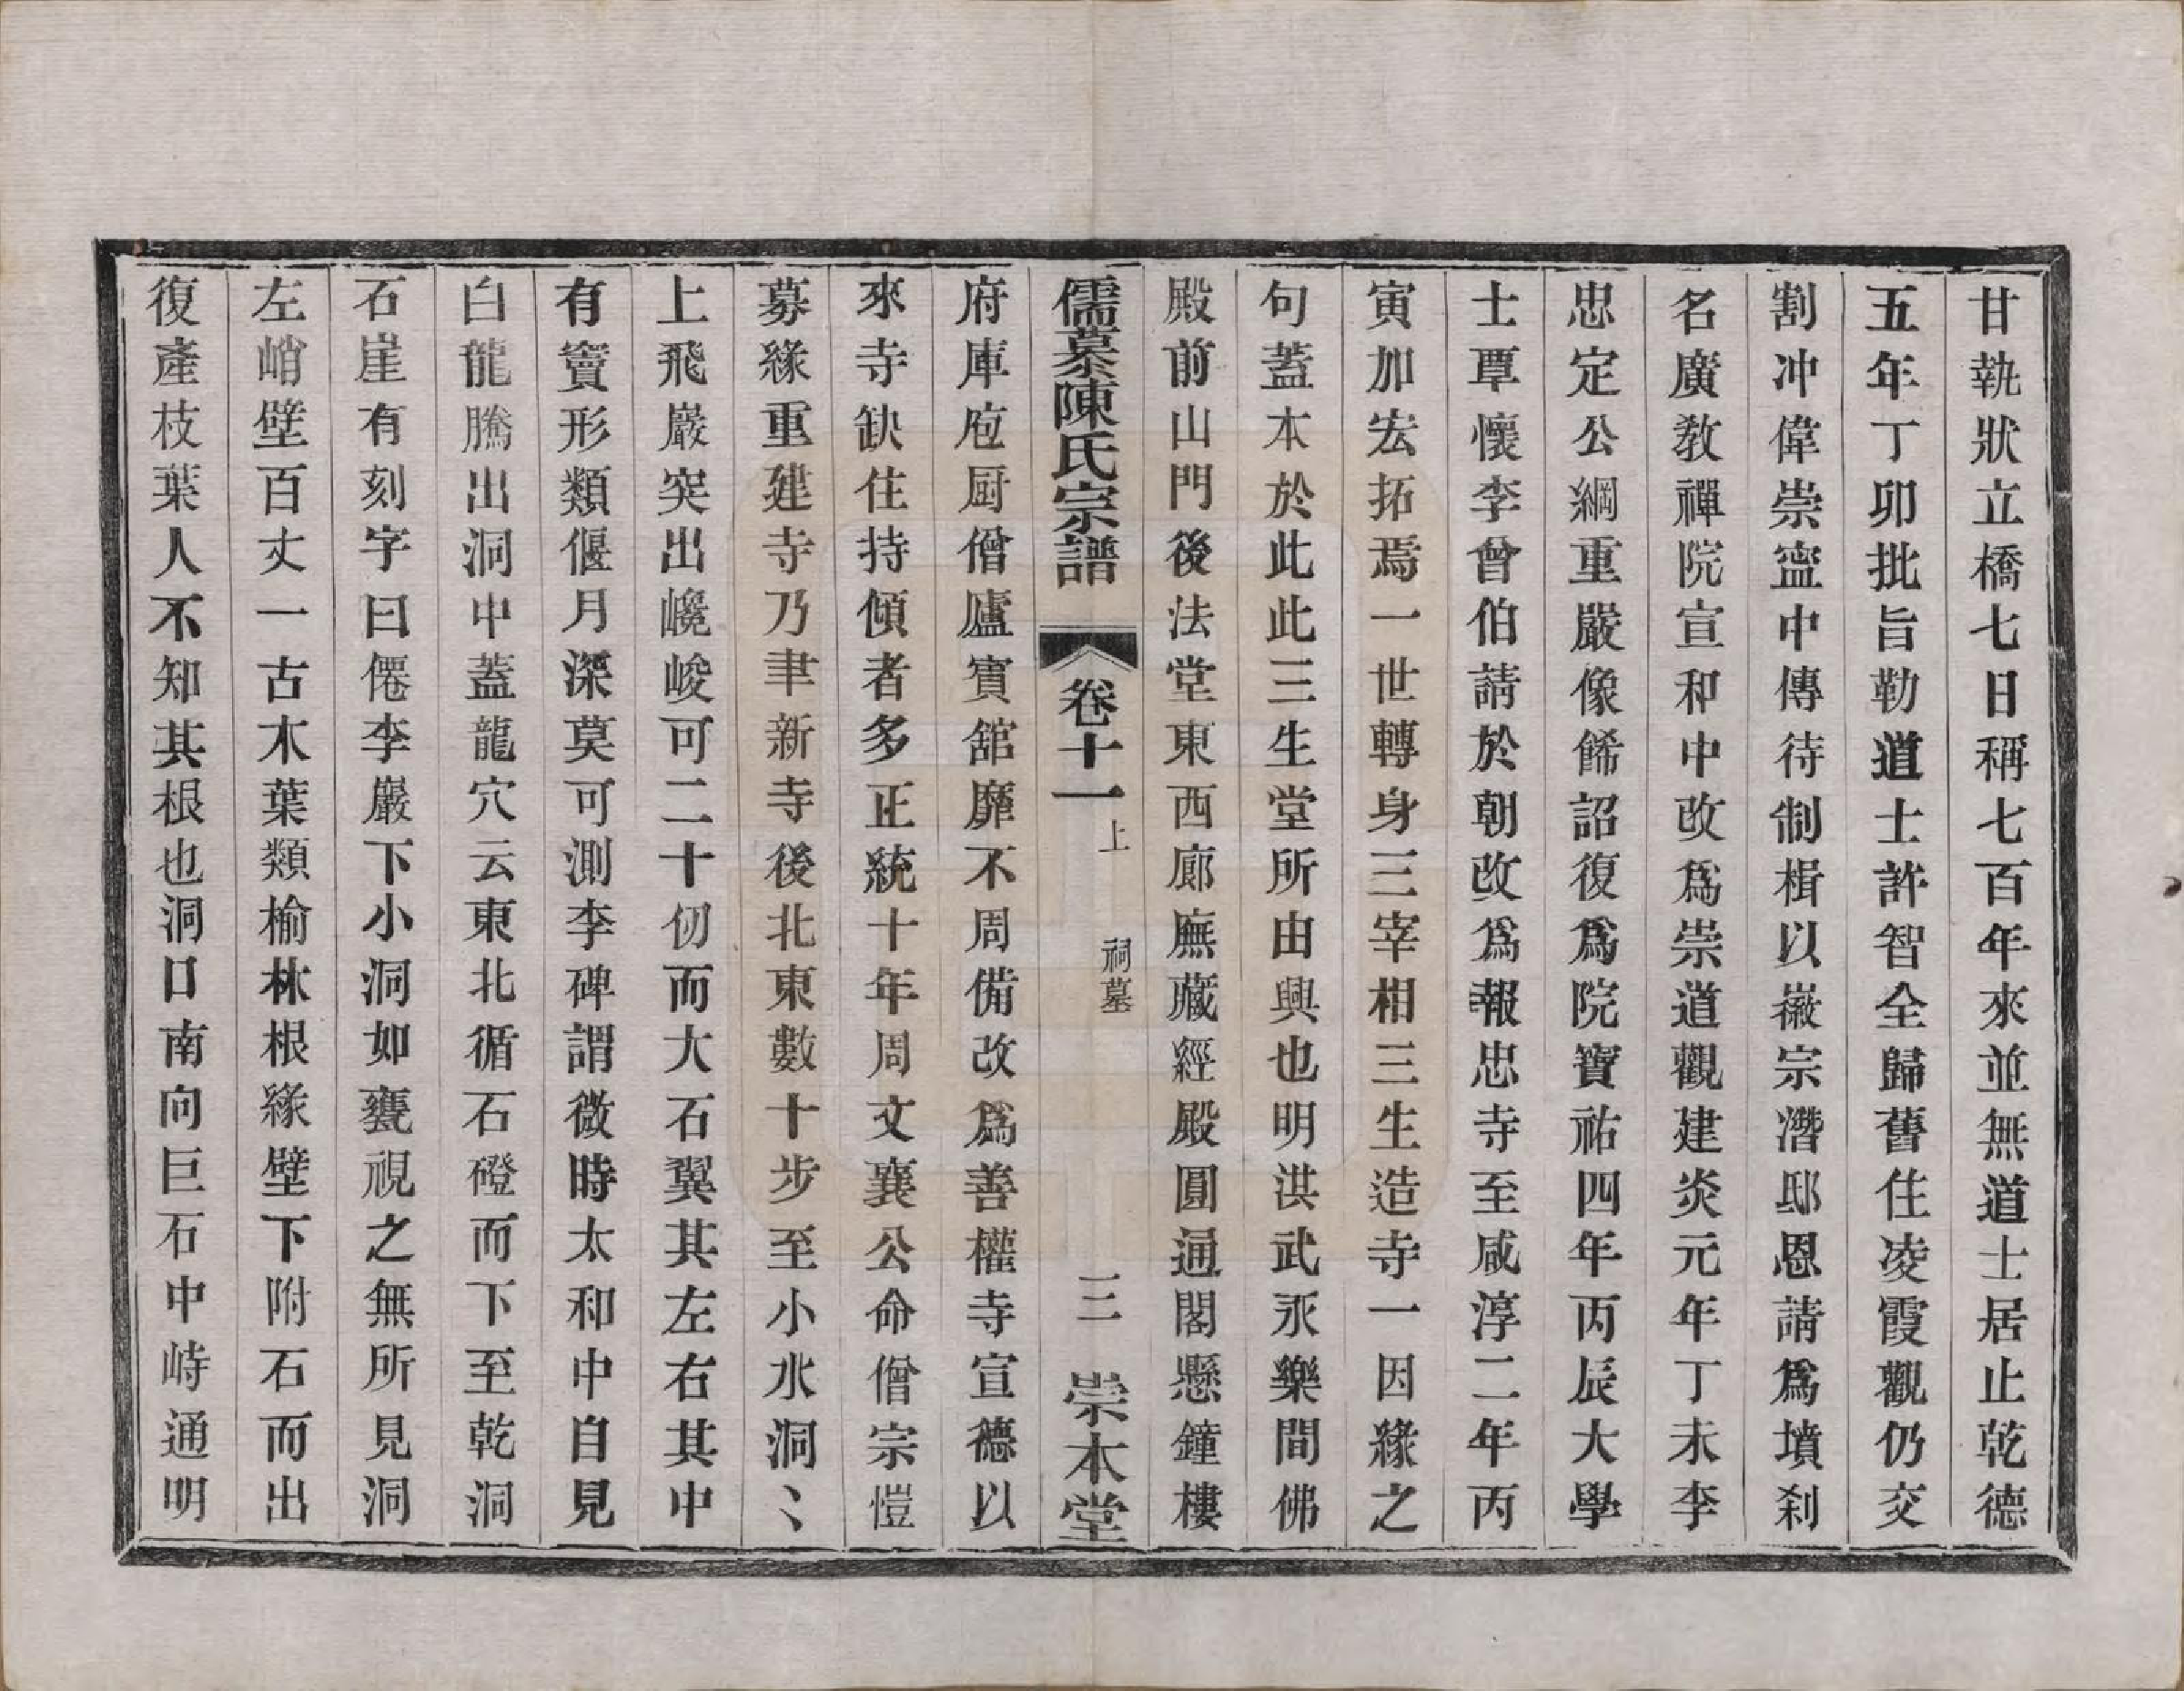 甘執狀立橋七日稱七百年來並無道士居止乾德
五年丁卯批旨勒道士許智全歸舊住凌霞觀仍交
割冲偉崇寍中傳待制楫以徽宗潛邸恩請爲墳刹
名廣教禪院宣和中改爲崇道觀建炎元年丁未李
忠定公綱重嚴像餙詔復爲院寶祐四年丙辰大學
士覃懷李曾伯請於朝改爲報忠寺至咸淳二年丙
寅加宏拓焉一世轉身三宰相三生造寺一因緣之
句蓋本於此此三生堂所由興也明洪武永樂間佛
殿前山門後法堂東西廊廡藏經殿圓通閣懸鐘樓
儒慕陳氏宗譜 卷十一 上 祠墓 三 崇本堂
府庫庖厨僧廬賓舘靡不周備改爲善權寺宣德以
來寺缺住持傾者多正統十年周文襄公命僧宗愷
募緣重建寺乃聿新寺後北東數十步至小水洞〻
上飛巖突出巉峻可二十仞而大石翼其左右其中
有竇形類偃月深莫可測李碑謂微時太和中自見
白龍騰出洞中蓋龍穴云東北循石磴而下至乾洞
石崖有刻字曰僊李巖下小洞如甕視之無所見洞
左峭壁百丈一古木葉類榆林根緣壁下附石而出
復產枝葉人不知其根也洞口南向巨石中峙通明